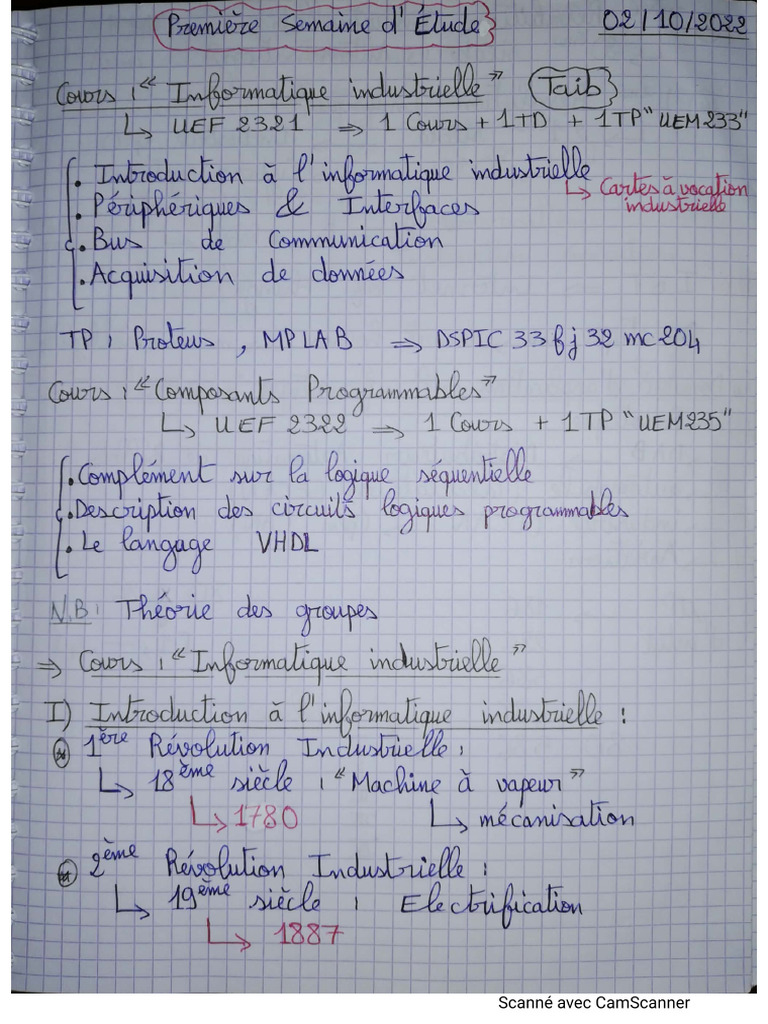 Première Semaine d'Étude 02/10/2022
Cours : “ Informatique industrielle ” Taib
↳ UEF 2321 ⇒ 1 Cours + 1TD + 1TP “UEM233”
. Introduction à l'informatique industrielle
↳ Cartes à vocation
industrielle
. Périphériques & Interfaces
. Bus de Communication
. Acquisition de données
TP : Proteus , MPLAB ⇒ DSPIC 33 fj 32 mc204
Cours : “ Composants Programmables ”
↳ UEF 2322 ⇒ 1 Cours + 1TP “UEM235”
. Complément sur la logique séquentielle
. Description des circuits logiques programmables
. Le langage VHDL
N.B : Théorie des groupes
⇒ Cours : “ Informatique industrielle ”
I) Introduction à l'informatique industrielle :
1ère Révolution Industrielle :
↳ 18ème siècle : “ Machine à vapeur ”
↳ 1780 ↳ mécanisation
2ème Révolution Industrielle :
↳ 19ème siècle : Electrification
↳ 1887
Scanné avec CamScanner